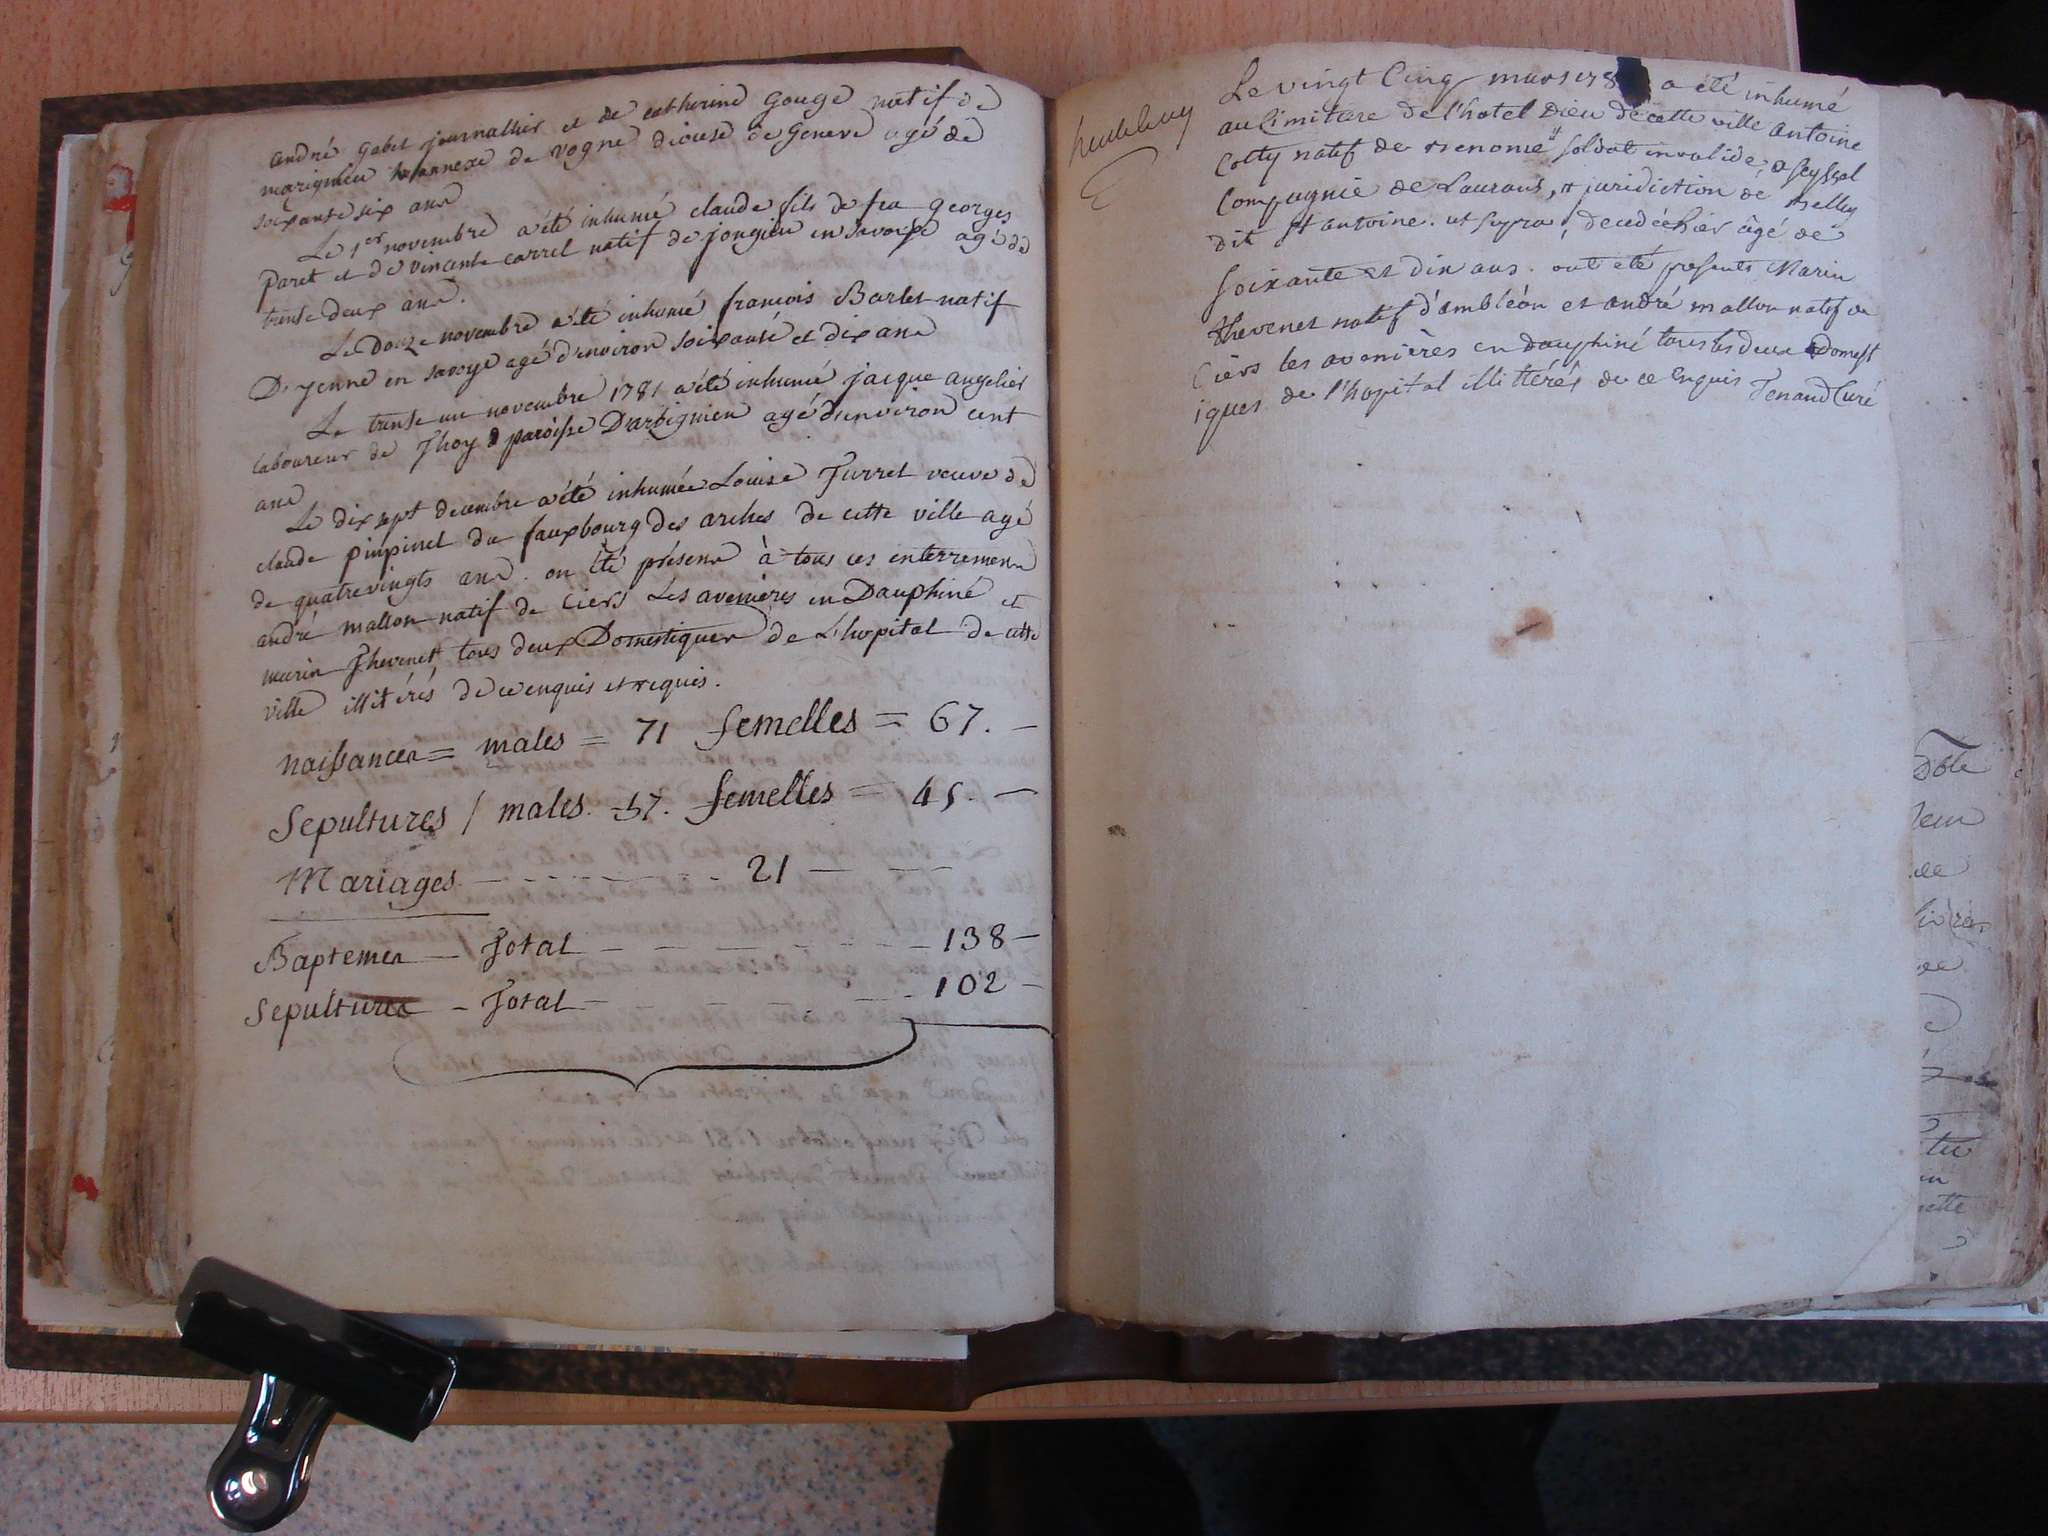 andré gabet journallier et de catherine gouge natif de
marignieu annexe de vogne diocese de Geneve agé de
soixante six ans
Le 1er novembre a été inhumé claude fils de feu georges
paret et de vincente carrel natif de jongieu en savoye agé de
trente deux ans.
Le Douze novembre a été inhumé francois Barlet natif
D'yenne en savoye agé d'environ soixante et dix ans
Le trente un novembre 1781 a été inhumé jacque angelier
laboureur de Thoy paroisse D'arbignieu agé d'environ cent
ans
Le dix sept decembre a été inhumée Louise Furret veuve de
claude pinpinel du fauxbourg des arches de cette ville agé
de quatrevingts ans. on été présens à tous ces enterremens
andré mallon natif de Ciers Les avenières en Dauphiné et
marin Thevenet tous deux Domestiques de L'hopital de cette
ville illitérés de ce enquis et requis.
naissances = males = 71 femelles = 67. —
Sepultures / males. 57. femelles = 45. —
Mariages - - - - - - - - 21 — —
Baptemes — Total - - - - - - - - 138 —
Sepultures - Total - - - - - - - 102 —
Le vingt Cinq mars 178 a été inhumé
au Cimitiere de l'hotel Dieu de cette ville Antoine
Cotty natif de soldat invalide a seyssel
Compagnie de Laurans, juridiction de Belley
dit st antoine. ut supra, decedé hier âgé de
soixante et dix ans. ont été presents Marin
thevenet natif d'ambléon et andré mallon natif de
Ciers les avenières en dauphiné tous les deux domest
iques de l'hopital illittérés de ce enquis Tenand Curé
Dole